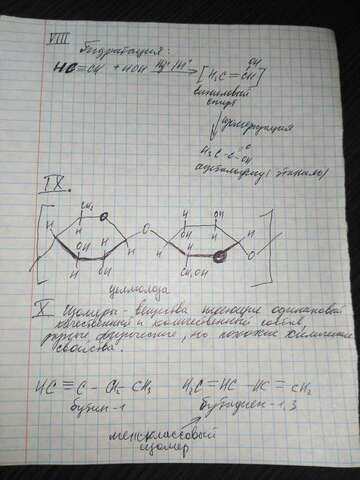 VIII
Гидратация:
HC≡CH + HOH Hg²⁺/H⁺ → [H₂C = CH]
OH
виниловый
спирт
изомеризация
H₃C - C
O
ацетальдегид (этаналь)
IX.
O
H
H
OH
H
O
H
OH
H
CH₂OH
O
целлюлоза
X Изомеры - вещества имеющие одинаковой
качественный и количественный состав,
физические, но похожие химические
свойства.
HC ≡ C - CH₂ - CH₃ H₂C = HC - HC = CH₂
бутин-1 бутадиен-1,3
межклассовый
изомер